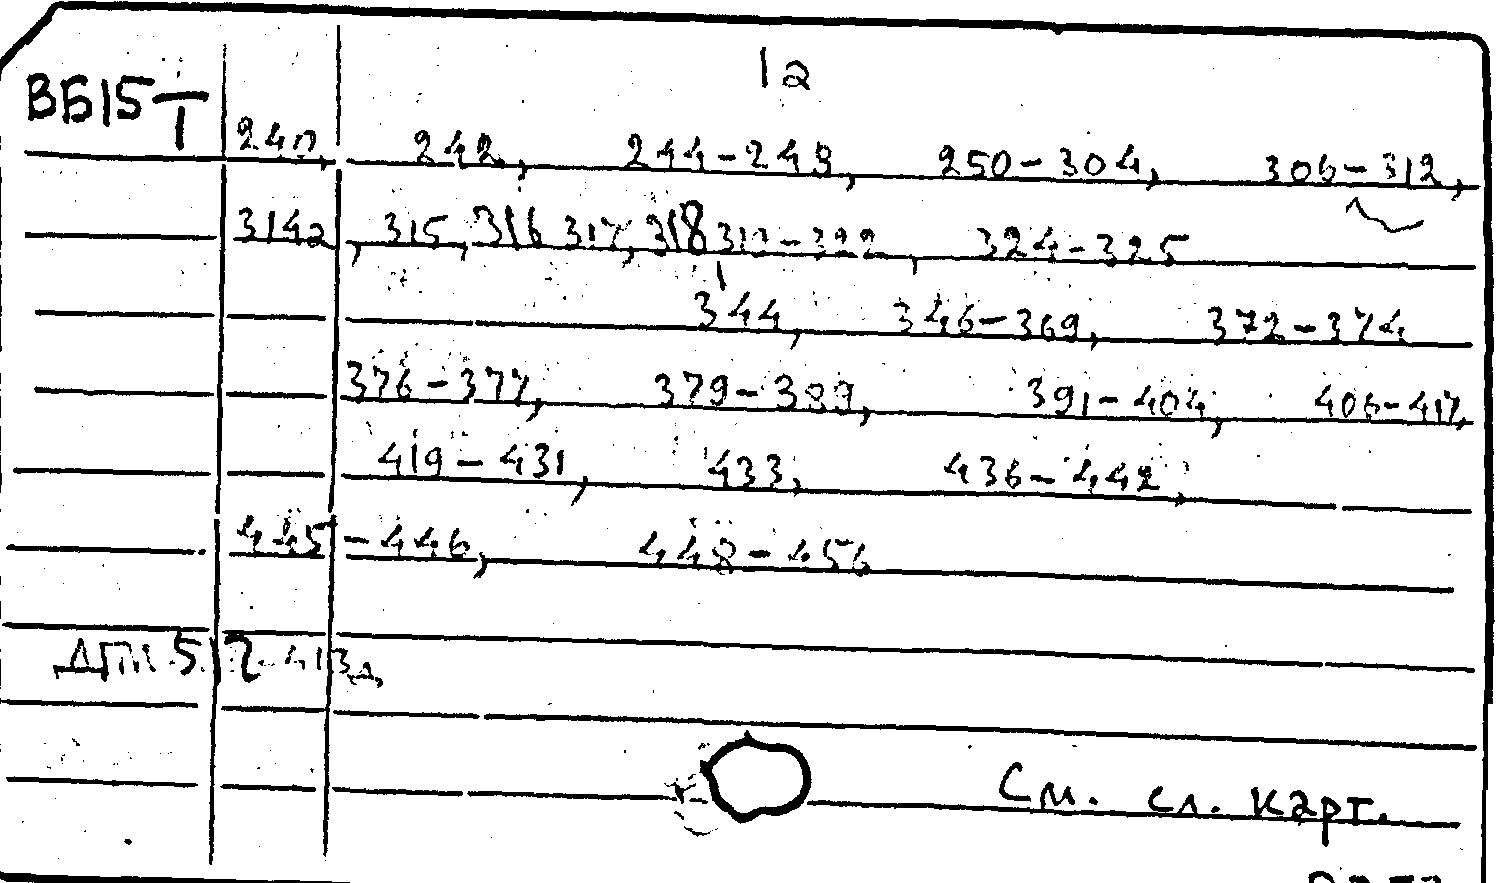 1а
ВБ15 Т/1
240, 242, 244-249, 250-304, 306-312,
314а, 315, 316 317, 318 319-322, 324-325
344, 346-369, 372-374
376-377, 379-389, 391-404, 406-417,
419-431, 433, 436-442,
445-446, 448-456
См. сл. карт.